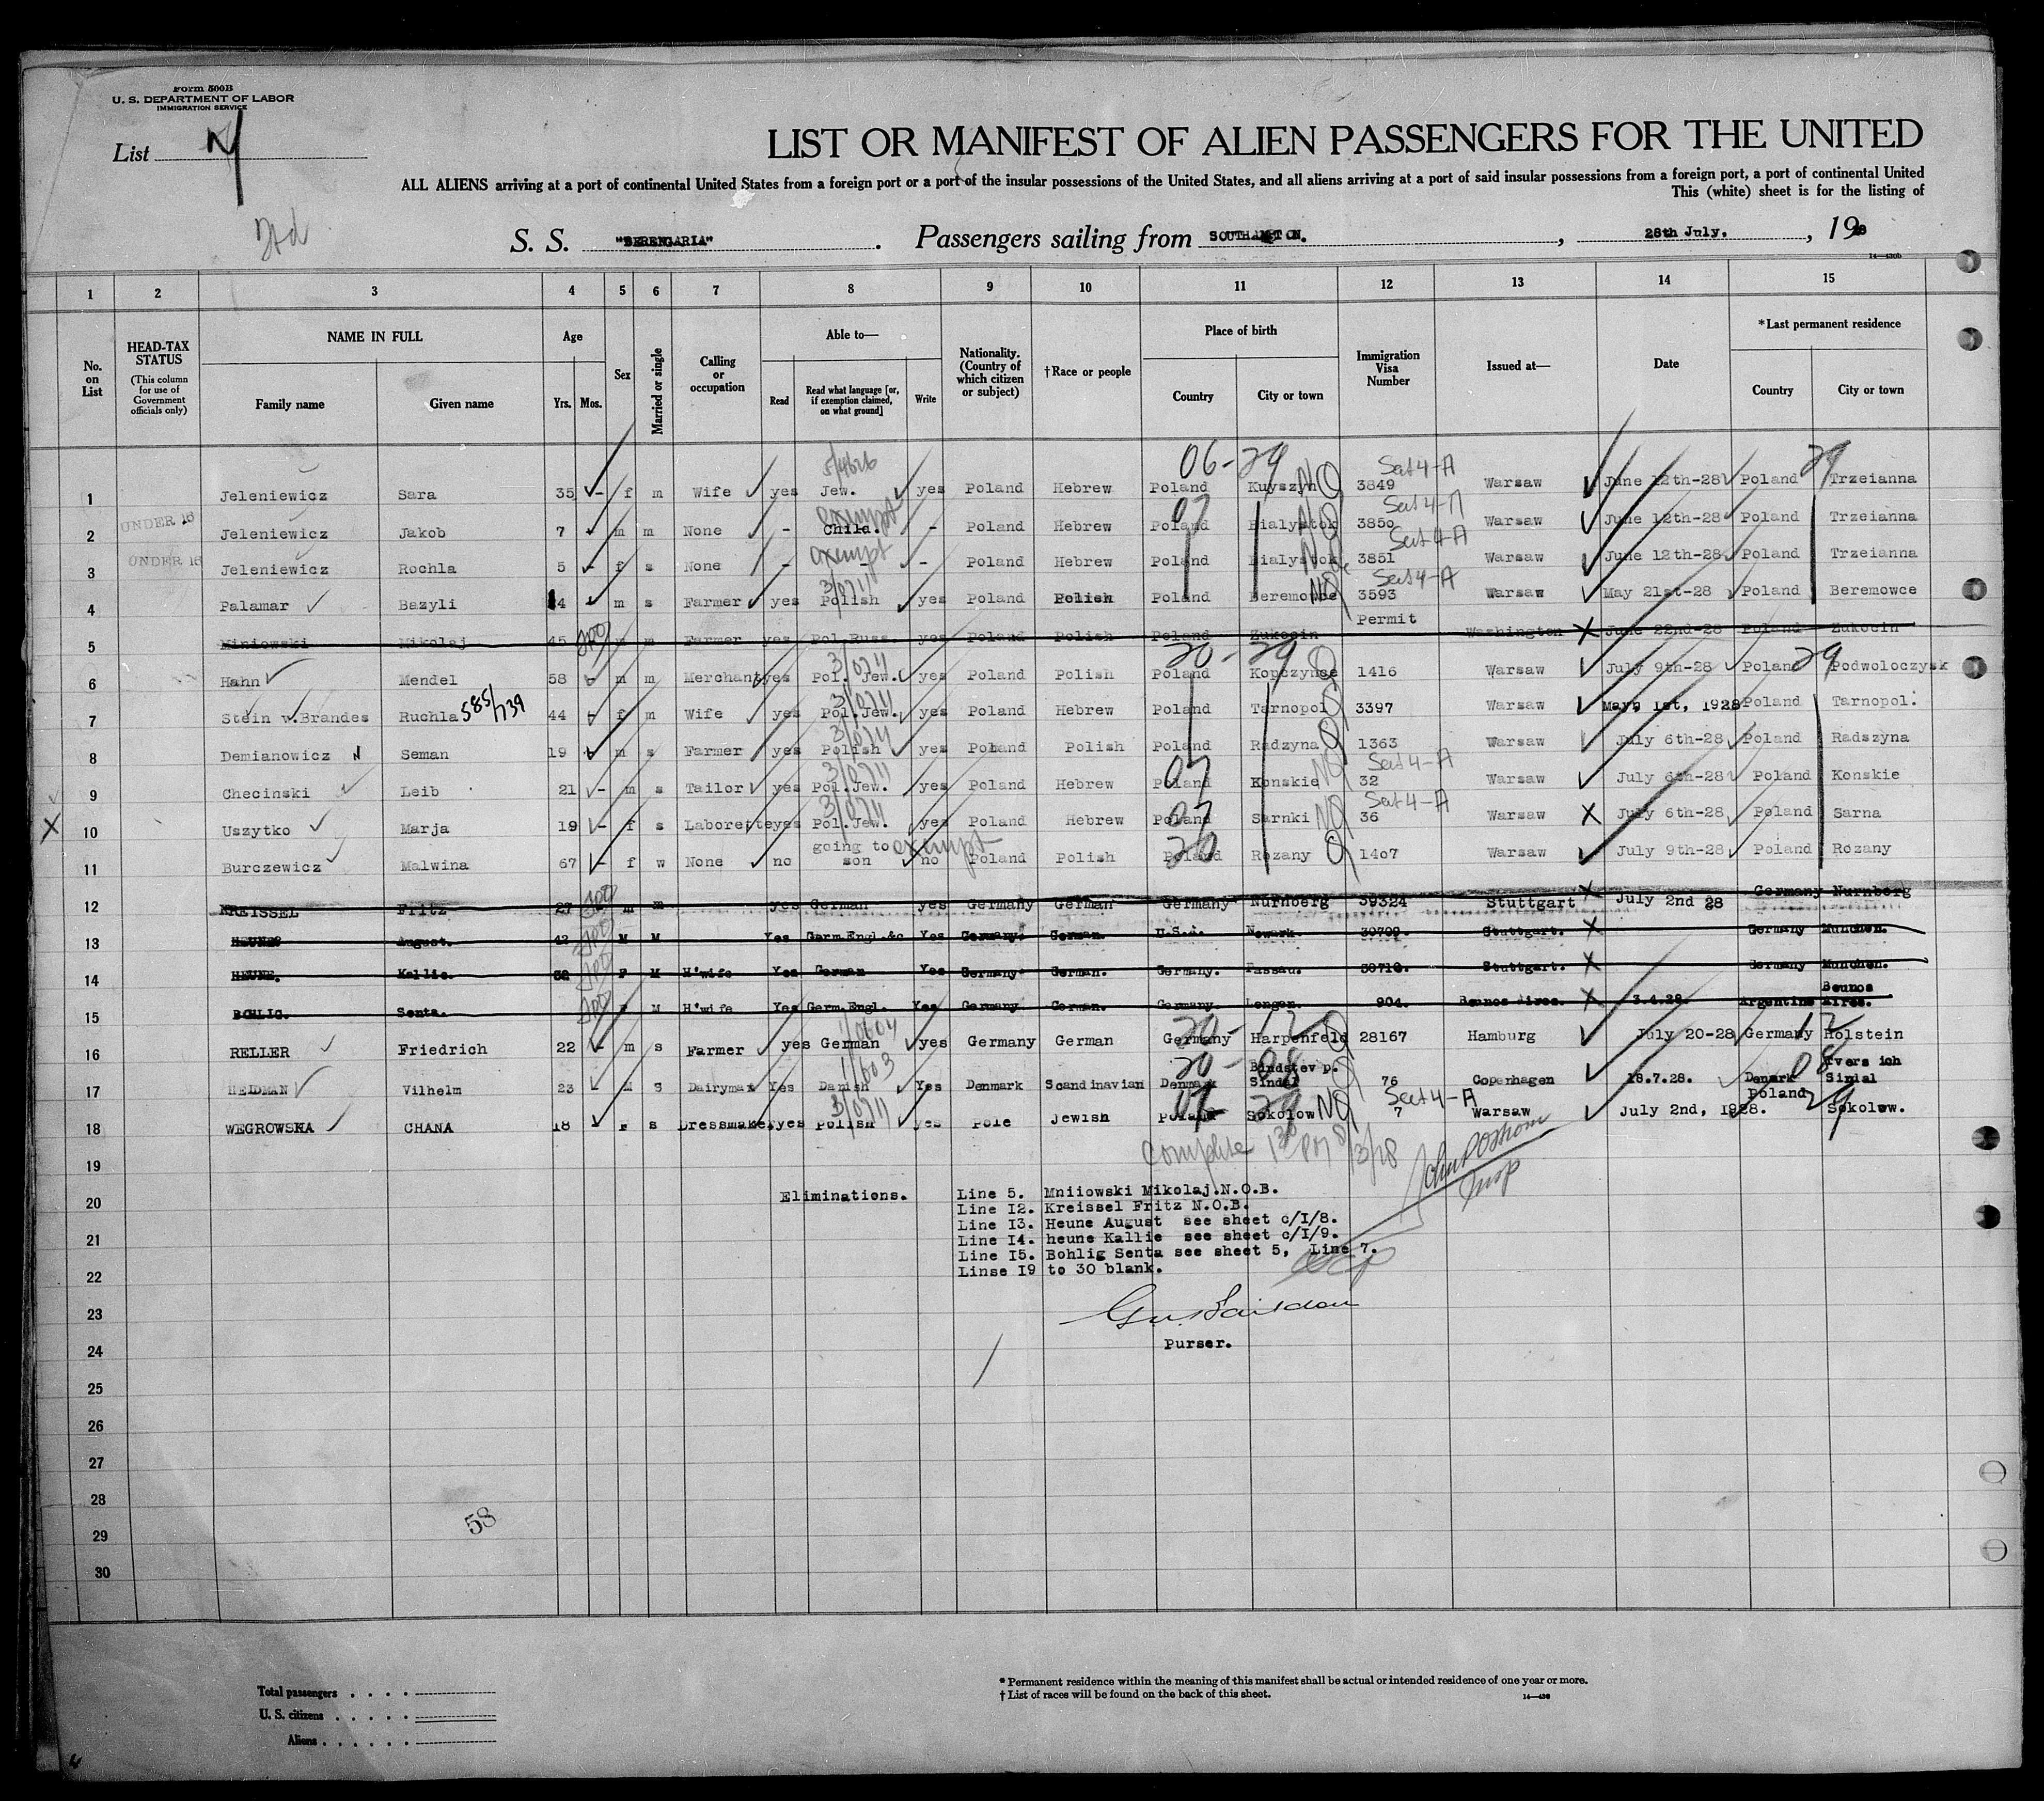 Form 500B
U. S. DEPARTMENT OF LABOR
IMMIGRATION SERVICE
List
LIST OR MANIFEST OF ALIEN PASSENGERS FOR THE UNITED
ALL ALIENS arriving at a port of continental United States from a foreign port or a port of the insular possessions of the United States, and all aliens arriving at a port of said insular possessions from a foreign port, a port of continental United
This (white) sheet is for the listing of
S. S. "BERENGARIA". Passengers sailing from SOUTHAMPTON., 28th July., 1928
14—430b
1 2 3 4 5 6 7 8 9 10 11 12 13 14 15
No. on List
HEAD-TAX STATUS (This column for use of Government officials only)
NAME IN FULL
Family name Given name
Age
Yrs. Mos.
Sex
Married or single
Calling or occupation
Able to—
Read Read what language [or, if exemption claimed, on what ground] Write
Nationality. (Country of which citizen or subject)
†Race or people
Place of birth
Country City or town
Immigration Visa Number
Issued at—
Date
*Last permanent residence
Country City or town
06-29 Sect 4-A 29
1 Jeleniewicz Sara 35 - f m Wife yes Jew. yes Poland Hebrew Poland Kuyszyn NQ 3849 Warsaw June 12th-28 Poland Trzeianna
UNDER 16 exempt 07 Sect 4-A
2 Jeleniewicz Jakob 7 - m m None - Child. - Poland Hebrew Poland Bialystok NQ 3850 Warsaw June 12th-28 Poland Trzeianna
UNDER 16 exempt Sect 4-A
3 Jeleniewicz Rochla 5 - f s None - - - Poland Hebrew Poland Bialystok 3851 Warsaw June 12th-28 Poland Trzeianna
Sect 4-A
4 Palamar Bazyli 4 m s Farmer yes Polish yes Poland Polish Poland Beremowce NQ 3593 Warsaw May 21st-28 Poland Beremowce
Permit
5 Miniowski Mikolaj 45 m m Farmer yes Pol.Russ. yes Poland Polish Poland Zukocin Washington June 22nd-28 Poland Zukocin
20-29 Q 29
6 Hahn Mendel 58 m m Merchant yes Pol. Jew. yes Poland Polish Poland Kopczynce 1416 Warsaw July 9th-28 Poland Podwoloczysk
585/739
7 Stein v.Brandes Ruchla 44 f m Wife yes Pol.Jew. yes Poland Hebrew Poland Tarnopol Q 3397 Warsaw May 1st, 1928 Poland Tarnopol.
8 Demianowicz Seman 19 m s Farmer yes Polish yes Poland Polish Poland Radzyna Q 1363 Warsaw July 6th-28 Poland Radszyna
07 Sect 4-A
9 Checinski Leib 21 - m s Tailor yes Pol.Jew. yes Poland Hebrew Poland Konskie NQ 32 Warsaw July 6th-28 Poland Konskie
07 Sect 4-A
X 10 Uszytko Marja 19 - f s Laborette yes Pol.Jew. yes Poland Hebrew Poland Sarnki NQ 36 Warsaw July 6th-28 Poland Sarna
going to exempt 20
11 Burczewicz Malwina 67 - f w None no son no Poland Polish Poland Rozany Q 1407 Warsaw July 9th-28 Poland Rozany
12 KREISSEL Fritz 27 m m yes German yes Germany German Germany Nurnberg 39324 Stuttgart July 2nd 28 Germany Nurnberg
13 HEUNE August. 42 M M Yes Germ.Engl.&c Yes Germany. German. U.S.A. Newark. 30709. Stuttgart. Germany Munchen.
14 HEUNE. Kallie. F M H'wife Yes German Yes Germany German. Germany. Passau. 30710. Stuttgart. Germany Munchen.
15 BOHLIG. Senta. F M H'wife Yes Germ.Engl. Yes Germany German. Germany Lengen. 904. Buenos Aires. 3.4.28. Argentine Buenos Aires.
20-12 12
16 RELLER Friedrich 22 - m s Farmer yes German yes Germany German Germany Harpenfeld Q 28167 Hamburg July 20-28 Germany Holstein
20-08 08
17 HEIDMAN Vilhelm 23 M S Dairyman Yes Danish Yes Denmark Scandinavian Denmark Bindstev p. Sindal Q 76 Copenhagen 18.7.28. Denmark Tvers ich Sindal
07 29 Sect 4-A 29
18 WEGROWSKA CHANA 18 F s Dressmaker yes polish yes Pole Jewish Poland Sokolow NQ 7 Warsaw July 2nd, 1928. Poland Sokolow.
19
complete
20 Eliminations. Line 5. Mniiowski Mikolaj.N.O.B.
Line I2. Kreissel Fritz N.O.B.
Line I3. Heune August see sheet c/I/8.
21 Line I4. heune Kallie see sheet c/I/9.
Line I5. Bohlig Senta see sheet 5, Line 7.
22 Linse I9 to 30 blank.
23
24 Purser.
25
26
27
28
29 58
30
Total passengers
U. S. citizens
Aliens
* Permanent residence within the meaning of this manifest shall be actual or intended residence of one year or more.
† List of races will be found on the back of this sheet.
14—430